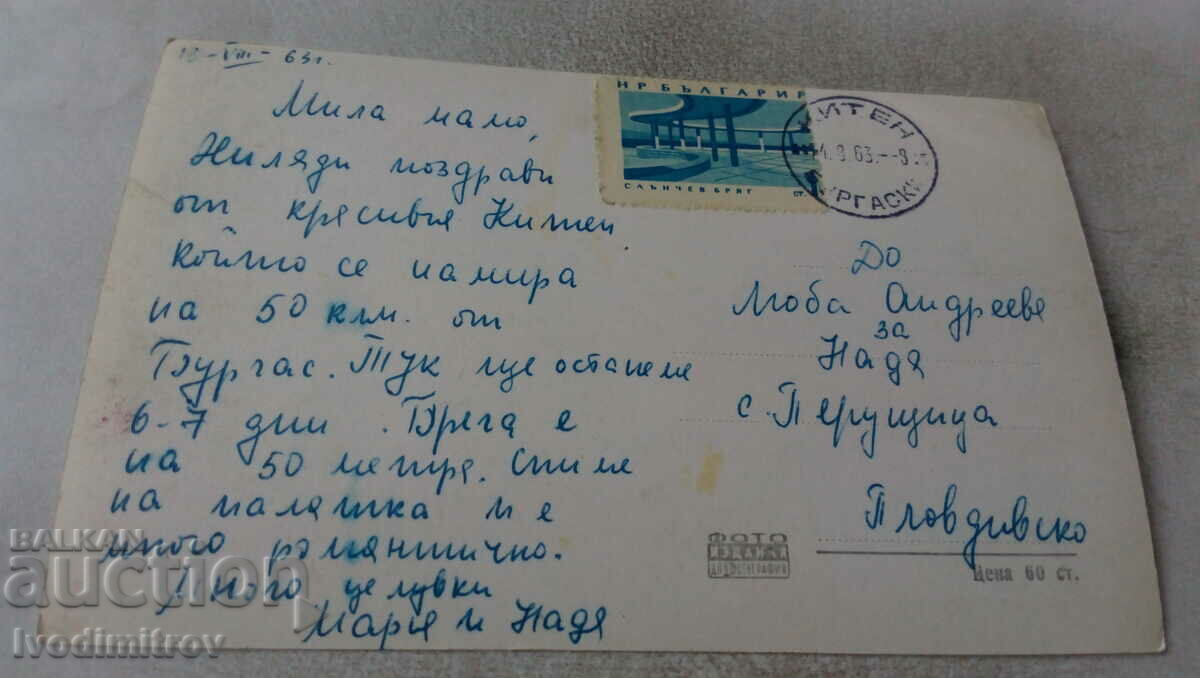 VIII - 63 г.
Мила мамо,
Хиляди поздрави
от красивия Китен
който се намира
на 50 км. от
Бургас. Тук ще останеме
6-7 дни. Брега е
на 50 метра. Спиме
на палатка и е
много романтично.
Много целувки
Мария и Надя
НР БЪЛГАРИЯ
СЛЪНЧЕВ БРЯГ
СТ.
КИТЕН
4.8.63.-8
БУРГАСКИ
До
Люба Андреева
за
Надя
с. Перущица
Пловдивско
ФОТО
ИЗДАНИЯ
Цена 60 ст.
BALKAN
auction
Ivodimitrov